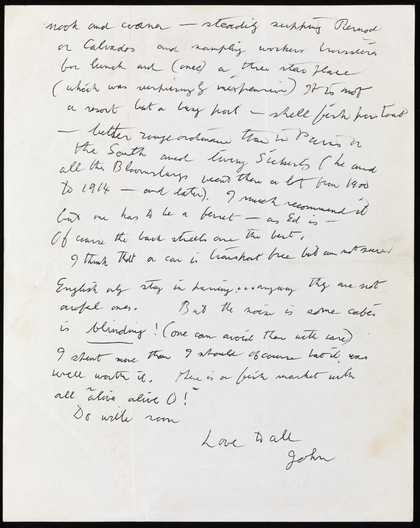 nook and corner — steadily supping Pernod
or Calvados and sampling workers
for lunch and (once) a three star place
(which was surprisingly inexpensive) It is not
a resort but a busy port — shell fish
— better than in Paris or
the South and living Sickerts (he and
all the Bloomsburys went there a lot from 1900
to 1914 — and later). I much recommend it
but one has to be a ferret — as Ed is —
Of course the back streets are the best.
I think that a car is transport free but am not sure
English only stay in ... anyway they are not
awful ones. But the noise in some cafés
is blinding! (one can avoid them with care)
I spent more than I should of course but it was
well worth it. There is a fish market with
all "alive alive O!"
Do write soon
Love to all
John